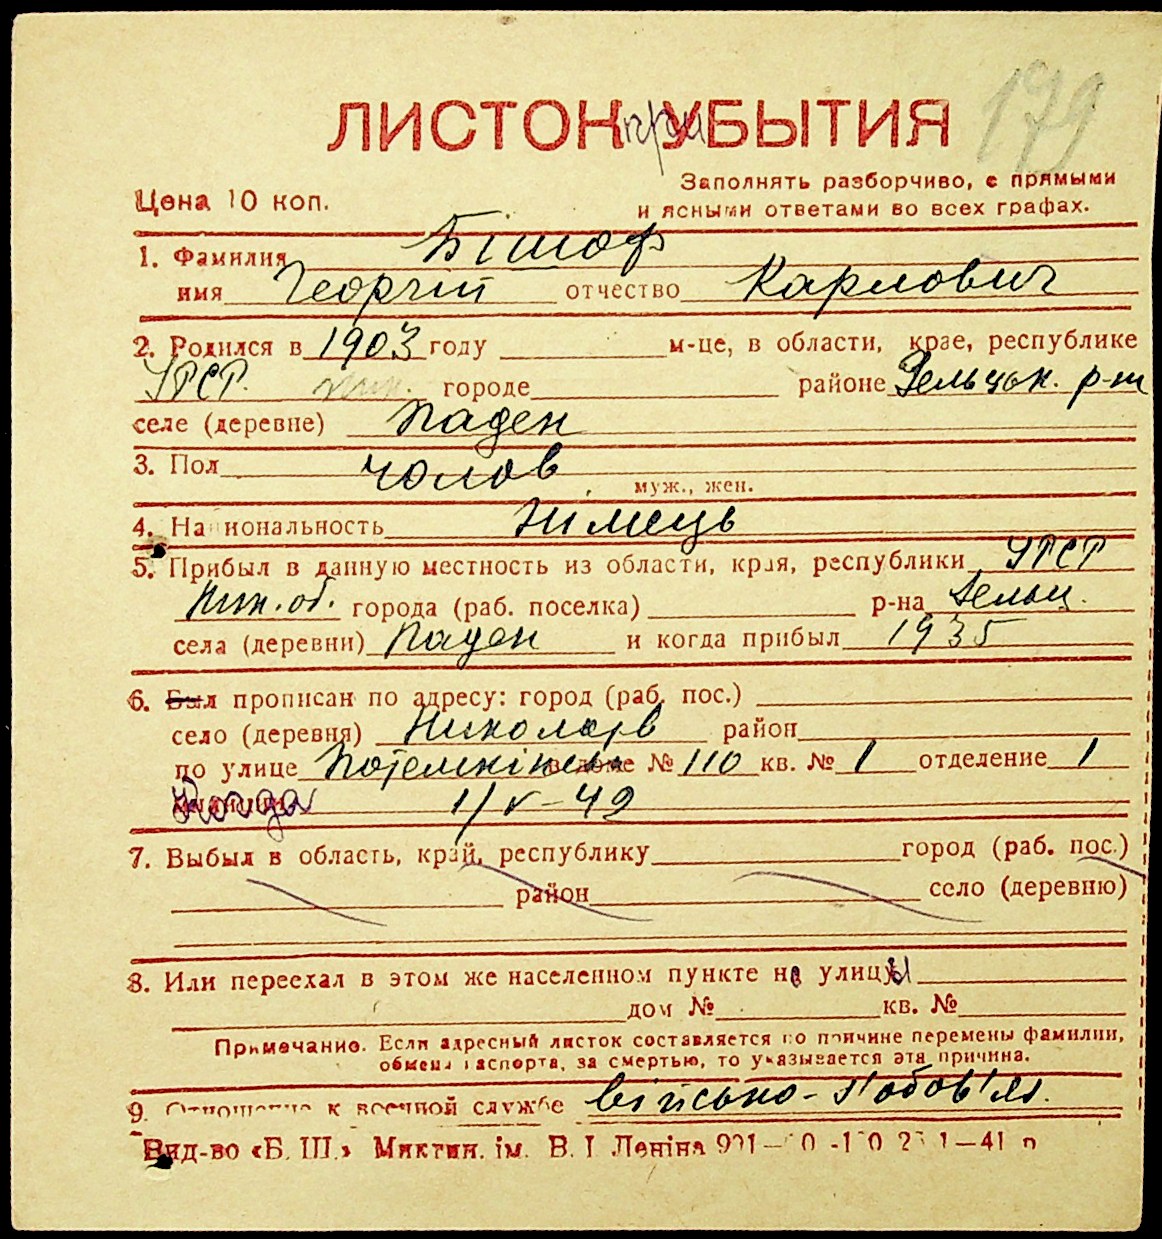 179
ЛИСТОК при УБЫТИЯ
Цена 10 коп.
Заполнять разборчиво, с прямыми
и ясными ответами во всех графах.
1. Фамилия Бішоф
имя Георгій отчество Карлович
2. Родился в 1903 году м-це, в области, крае, республике
УРСР. городе районе Зельцьк. р-ні
селе (деревне) Баден
3. Пол чолов
муж., жен.
4. Национальность Німець
5. Прибыл в данную местность из области, края, республики УРСР
Мик. об. города (раб. поселка) р-на Зельц.
села (деревни) Баден и когда прибыл 1935
6. Был прописан по адресу: город (раб. пос.)
село (деревня) Николаєв район
по улице Потемкінськ в доме № 110 кв. № 1 отделение 1
Когда 1/V-42
7. Выбыл в область, край, республику город (раб. пос.)
район село (деревню)
8. Или переехал в этом же населенном пункте на улицы
дом № кв. №
Примечание. Если адресный листок составляется по причине перемены фамилии,
обмена паспорта, за смертью, то указывается эта причина.
9. Отношение к военной службе військо-з'обов'яз.
Вид-во «Б. Ш.» Микгин. ім. В. І Леніна